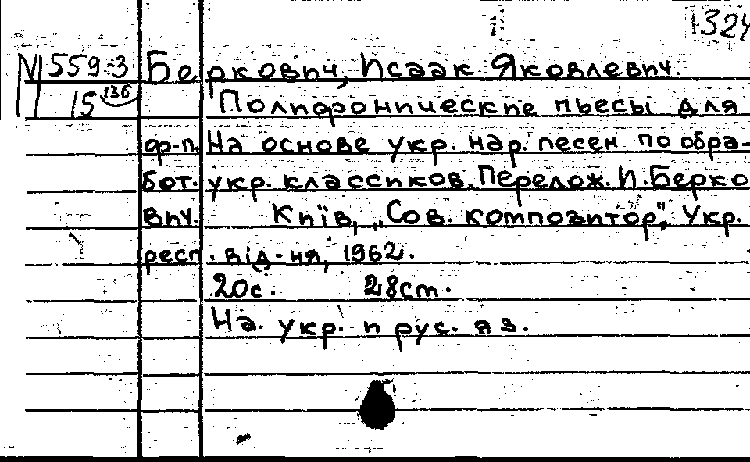 1324
N 559-3 Беркович, Исаак Яковлевич.
15 136 Полифонические пьесы для
ф-п. На основе укр. нар. песен по обра-
бот. укр. классиков. Перелож. И. Берко
вич. Київ, „Сов. композитор", Укр.
респ. від-ня, 1962.
20с. 28cm.
На укр. и рус. яз.